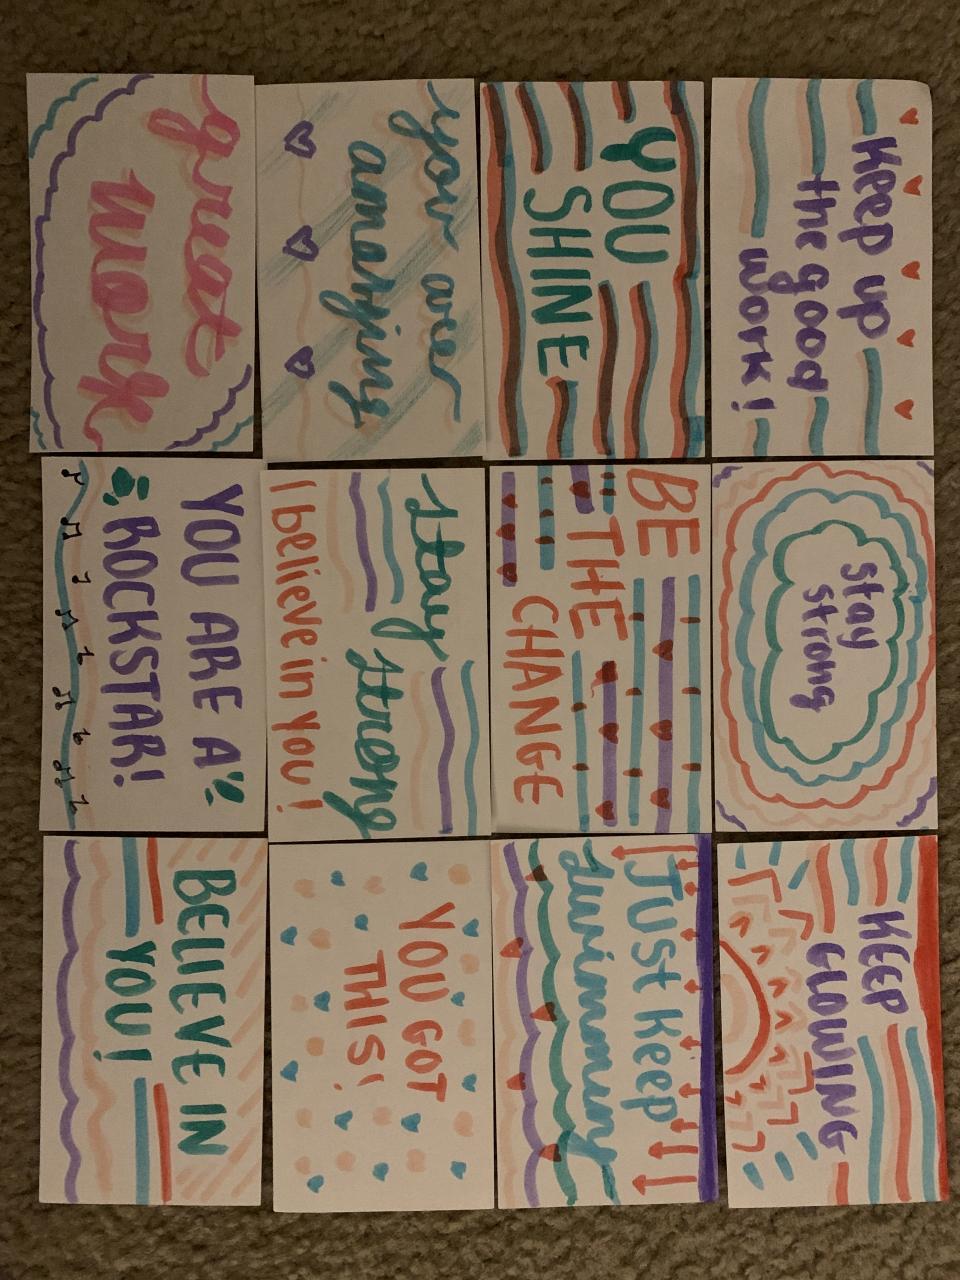 Keep up
the good
work!
stay
strong
KEEP
GLOWING
YOU
SHINE
BE
THE
CHANGE
JUST KEEP
swimming
you are
amazing
stay
strong
I believe in you!
YOU GOT
THIS!
great
work
YOU ARE A
ROCKSTAR!
BELIEVE IN
YOU!